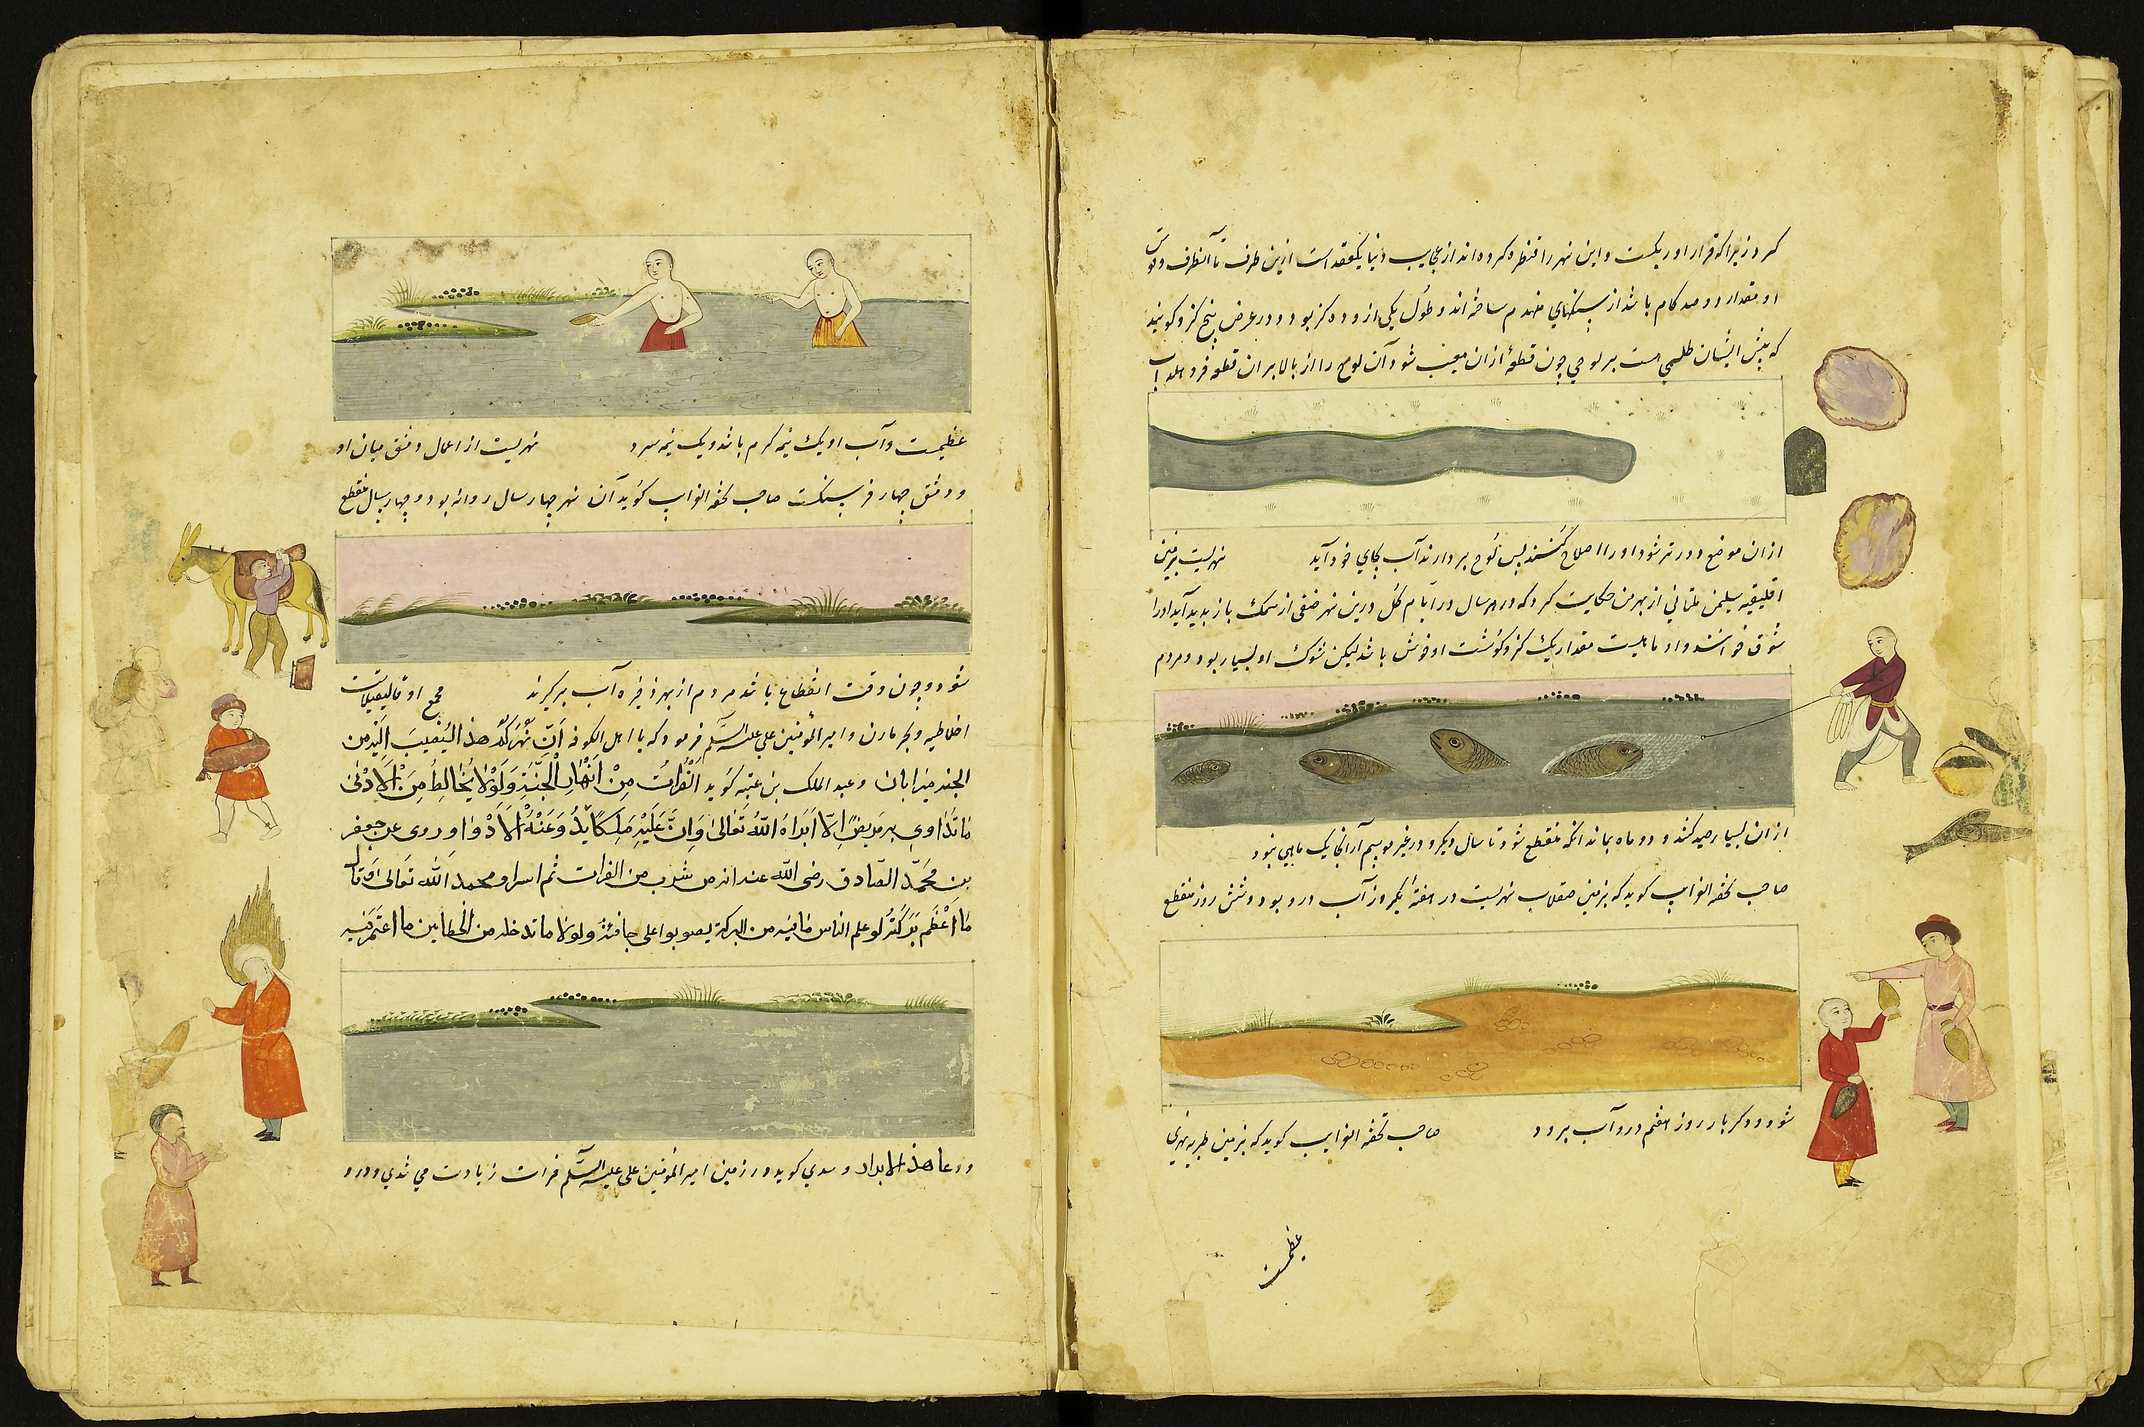 کرد زیرا که قرار او ریکست و این نهر را قنطره کرده اند از عجایب دنیا یکعقد است ازین طرف تا آنطرف وقوس
او مقدار دو صد کام باشد از سنکهای مهندم ساخته اند و طول یکی از و ده کز بود و در عرض پنج کز و کویند
که پیش ایشان طلسمی هست بر لوحی چون قطعهٔ از ان معیب شود آن لوح را از بالا بر ان قطعه فرو هلند آب
از ان موضع دورتر شود او را اصلاح کنند پس لوح بردارند آب بجای خود آید نهریست بزمین
سلیمن ملتانی از بهر من حکایت کرد که در هر سال در ایام کل درین نهر صنفی از سمک باز بدید آید او را
شوق خوانند و او ماهیست مقدار یک کز و کوشت او خوش باشد لیکن شوک او بسیار بود و مردم
از ان بسیار صید کنند و دو ماه بماند انکه منقطع شود تا سال دیکر و در غیر موسم آن آنجا یک ماهی نبود
صاحب تحفه الغرایب کوید که بزمین صقلاب نهریست در هفتهٔ یکروز آب درو بود و شش روز منقطع
شود و دکر بار روز هفتم درو آب برود صاحب تحفه الغرایب کوید که بزمین طبریه نهری
عظیمست
عظیمست و آب او یک نیمه کرم باشد و یک نیمه سرد نهریست از اعمال دمشق میان او
و دمشق چهار فرسنکست صاحب تحفه الغرایب کوید آن نهر چهار سال روانه بود و چهار سال منقطع
شود و چون وقت انقطاع باشد مردم از بهر ذخیره آب بر کیرند
امیر المؤمنین علی علیه السّلم فرمود که یا اهل الکوفه اَنّ نَهرَکُم هذا الیه من
الجنه میزابان و عبد الملک بن کوید اَلْفُراتُ مِنْ اَنْهارِ الْجَنَّةِ وَلَوْلا یُخالِطُ مِنَ الاَذی
ماتَداوی به مَریضٌ اِلّا اَبْراهُ اللّٰهُ تَعالی وَاِنَّ عَلَیْهِ مَلِکاً یذُودُ عَنْهُ الاَدْواء و روی عن جعفر
بن محمّد الصّادق رضی الله عنه انه من شرب من الفرات ثم و محمد الله تعالی و قال
ما اَعْظَمَ بَرَکَتَهُ لو علم الناس ما فیه من البرکة علی حافتیه و لولا ماتدخله من الخطاین ما اغتمر فیه
ذو عاهة الا براء و سدی کوید در زمین امیر المؤمنین علی علیه السّلم فرات زیادت می شدی و درو